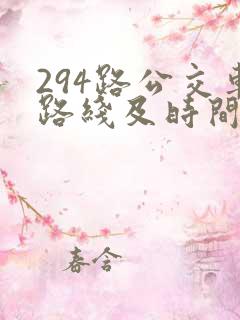 294路公交車
路綫及時間
春含